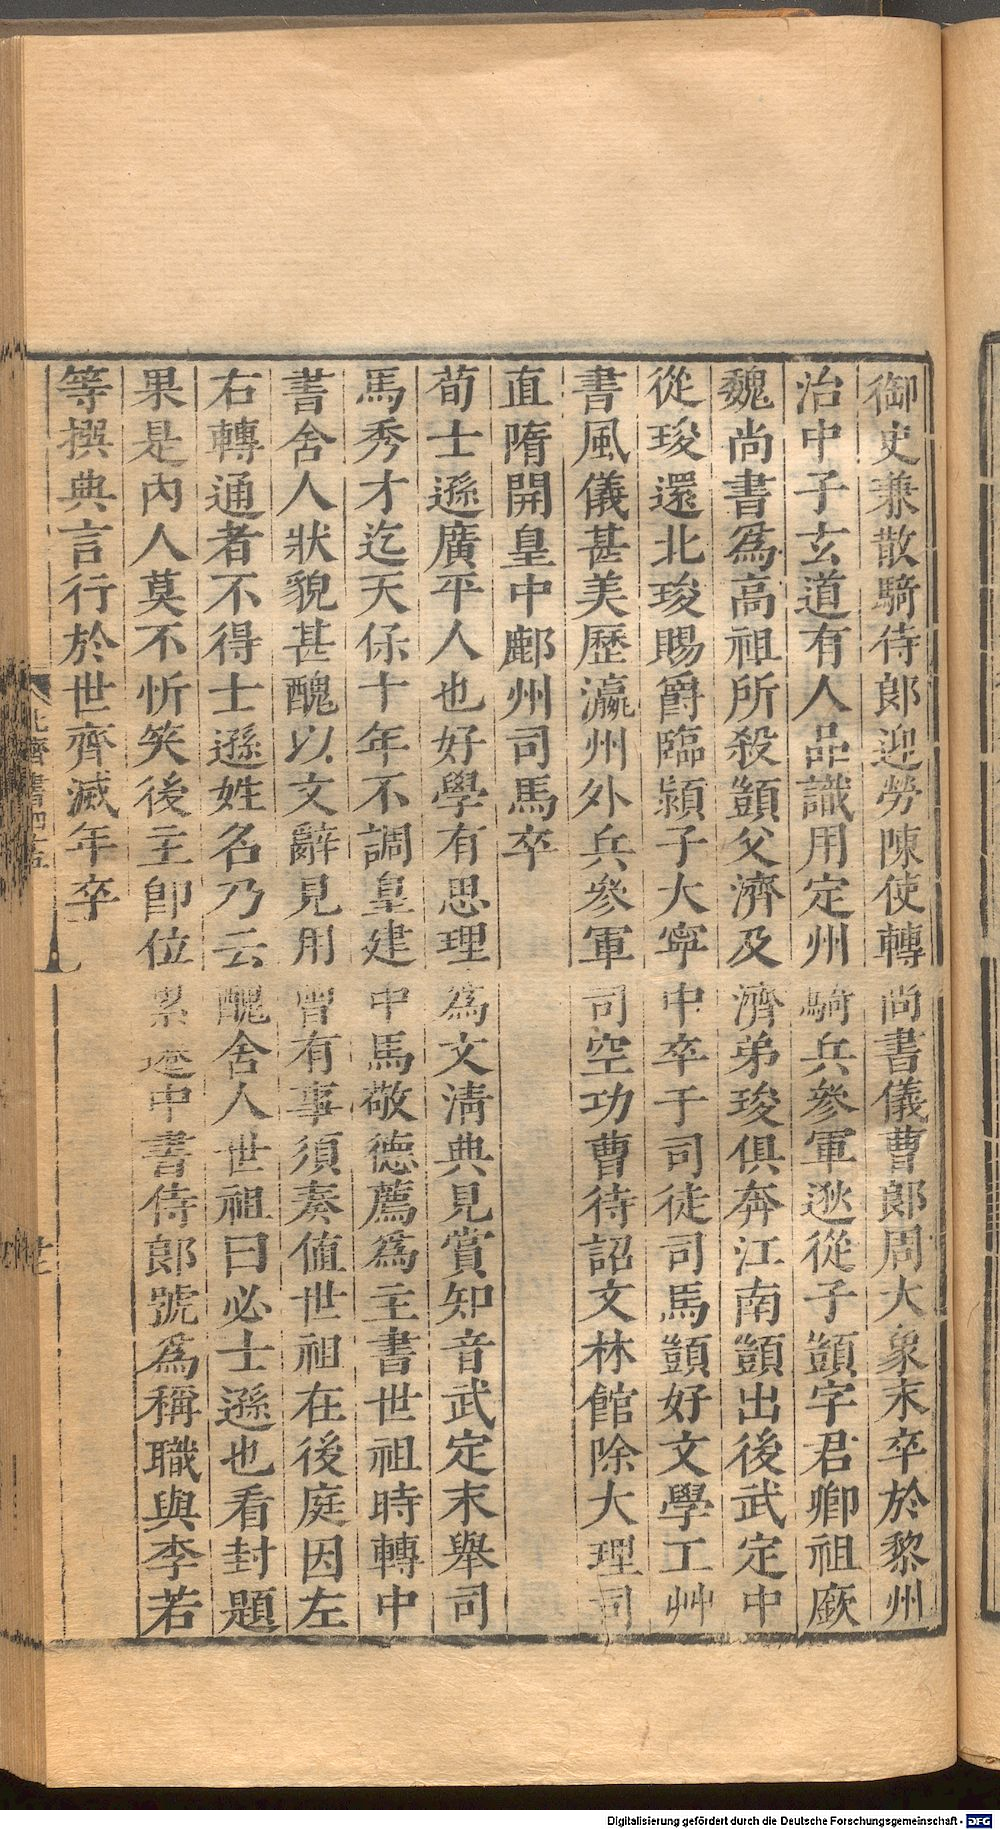 御史兼散騎待郎迎勞陳使轉尚書儀曹郎周大象末卒於黎州
治中子玄道有人品識用定州騎兵參軍遜從子顗字君卿祖厥
魏尚書爲高祖所殺顗父濟及濟弟琁俱奔江南顗出後武定中
從琁還北琁賜爵臨潁子大寧中卒于司徒司馬顗好文學工艸
書風儀甚美歷瀛州外兵參軍司空功曹待詔文林館除大理司
直隋開皇中鄜州司馬卒
荀士遜廣平人也好學有思理爲文清典見賞知音武定末舉司
馬秀才迄天保十年不調皇建中馬敬德薦爲主書世祖時轉中
書舍人狀貌甚醜以文辭見用曾有事須奏值世祖在後庭因左
右轉通者不得士遜姓名乃云醜舍人世祖曰必士遜也看封題
果是內人莫不忻笑後主卽位累遷中書侍郎號爲稱職與李若
等撰典言行於世齊滅年卒
北齊書四五
廿七
Digitalisierung gefördert durch die Deutsche Forschungsgemeinschaft - DFG